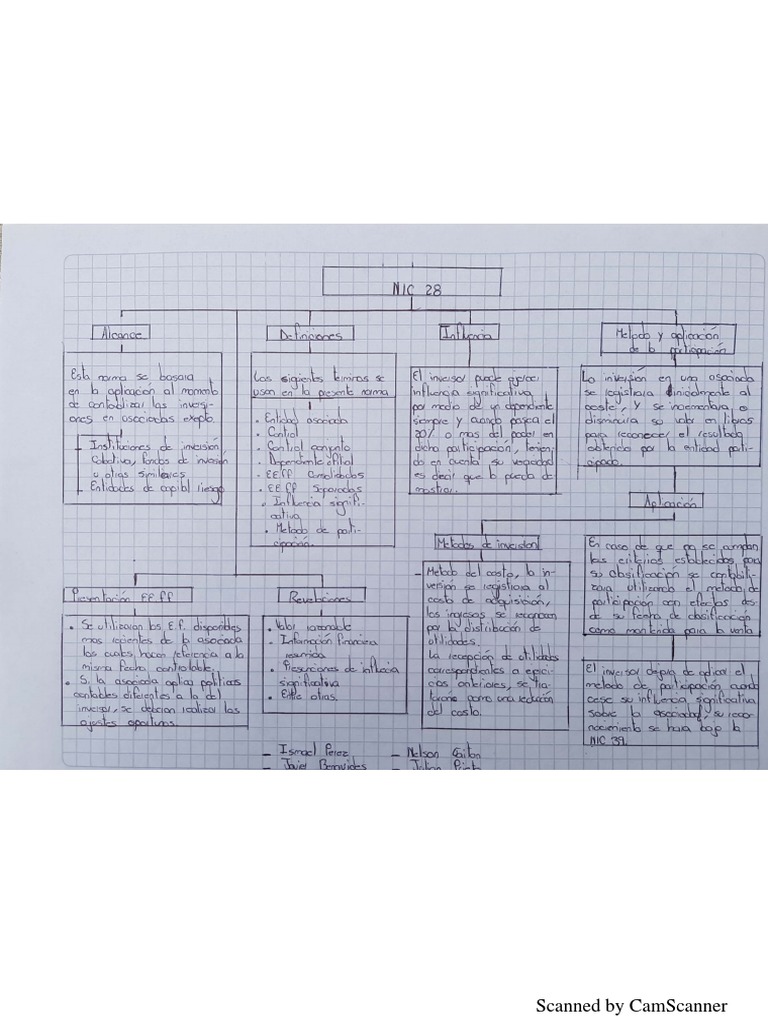 NIC 28
Alcance
Esta norma se basara
en la aplicación al momento
de contabilizar las inversi-
ones en asociadas exepto.
- Instituciones de inversión
Colectiva, fondos de invasión
u otras similares
- Entidades de capital riesgo
Definiciones
Los siguientes terminos se
usan en la presente norma
• Entidad asociada
• Control
• Control conjunto
• Dependiente filial
• EE.FF Consolidados
• EE FF Separados
• Influencia signifi-
cativa
• Metodo de parti-
cipación.
Influencia
El inversor puede ejercer
influencia significativa
por medio de un dependiente
siempre y cuando posea el
20% o mas del poder en
dicha participación, tenien-
do en cuenta su
es decir que lo pueda de-
mostrar.
Metodo y aplicación
de la participación
La inversión en una asociada
se registrara inicialmente al
coste, y se incrementara o
disminuira su valor en libros
para reconocer el resultado
obtenido por la entidad parti-
cipada.
Aplicación
Metodos de inversion
- Metodo del costo, la in-
versión se registrara al
costo de adquisición,
los ingresos se reconocen
por la distribución de
utilidades.
La recepción de utilidades
correspondientes a ejerci-
cios anteriores, se tra-
taran como una reducción
del costo.
En caso de que no se cumplan
los criterios establecidos para
su clasificación se contabili-
zara utilizando el metodo de
participación con efectos des-
de su fecha de clasificación
como mantenida para la venta
El inversor dejara de aplicar el
metodo de participación cuando
cese su influencia significativa
sobre la asociada, su reco-
nocimiento se hara bajo la
NIC 39.
Presentación EE FF
• Se utilizaran los E.f. disponibles
mas recientes de la asociada
los cuales, hacen referencia a la
misma fecha controlable.
• Si la asociada aplica politicas
contables diferentes a la del
inversor, se deberan realizar los
ajustes oportunos.
Revelaciones
• Valor razonable
• Información financiera
resumida
• Presunciones de influencia
significativa
• Entre otras.
- Ismael Perez
- Nelson Gaitan
- Javier Benavides
Scanned by CamScanner